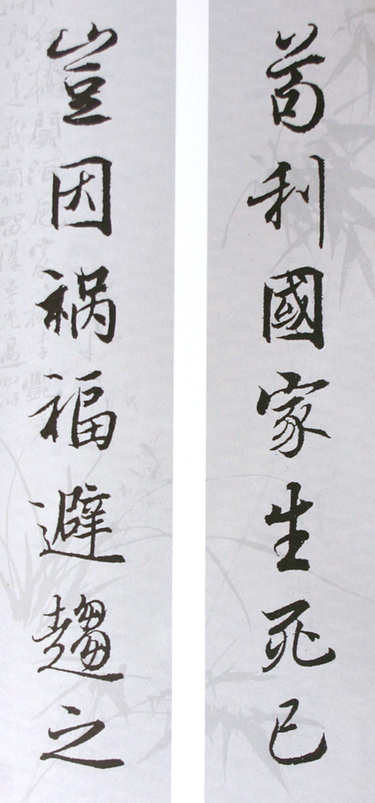 苟利國家生死已
豈因祸福避趨之